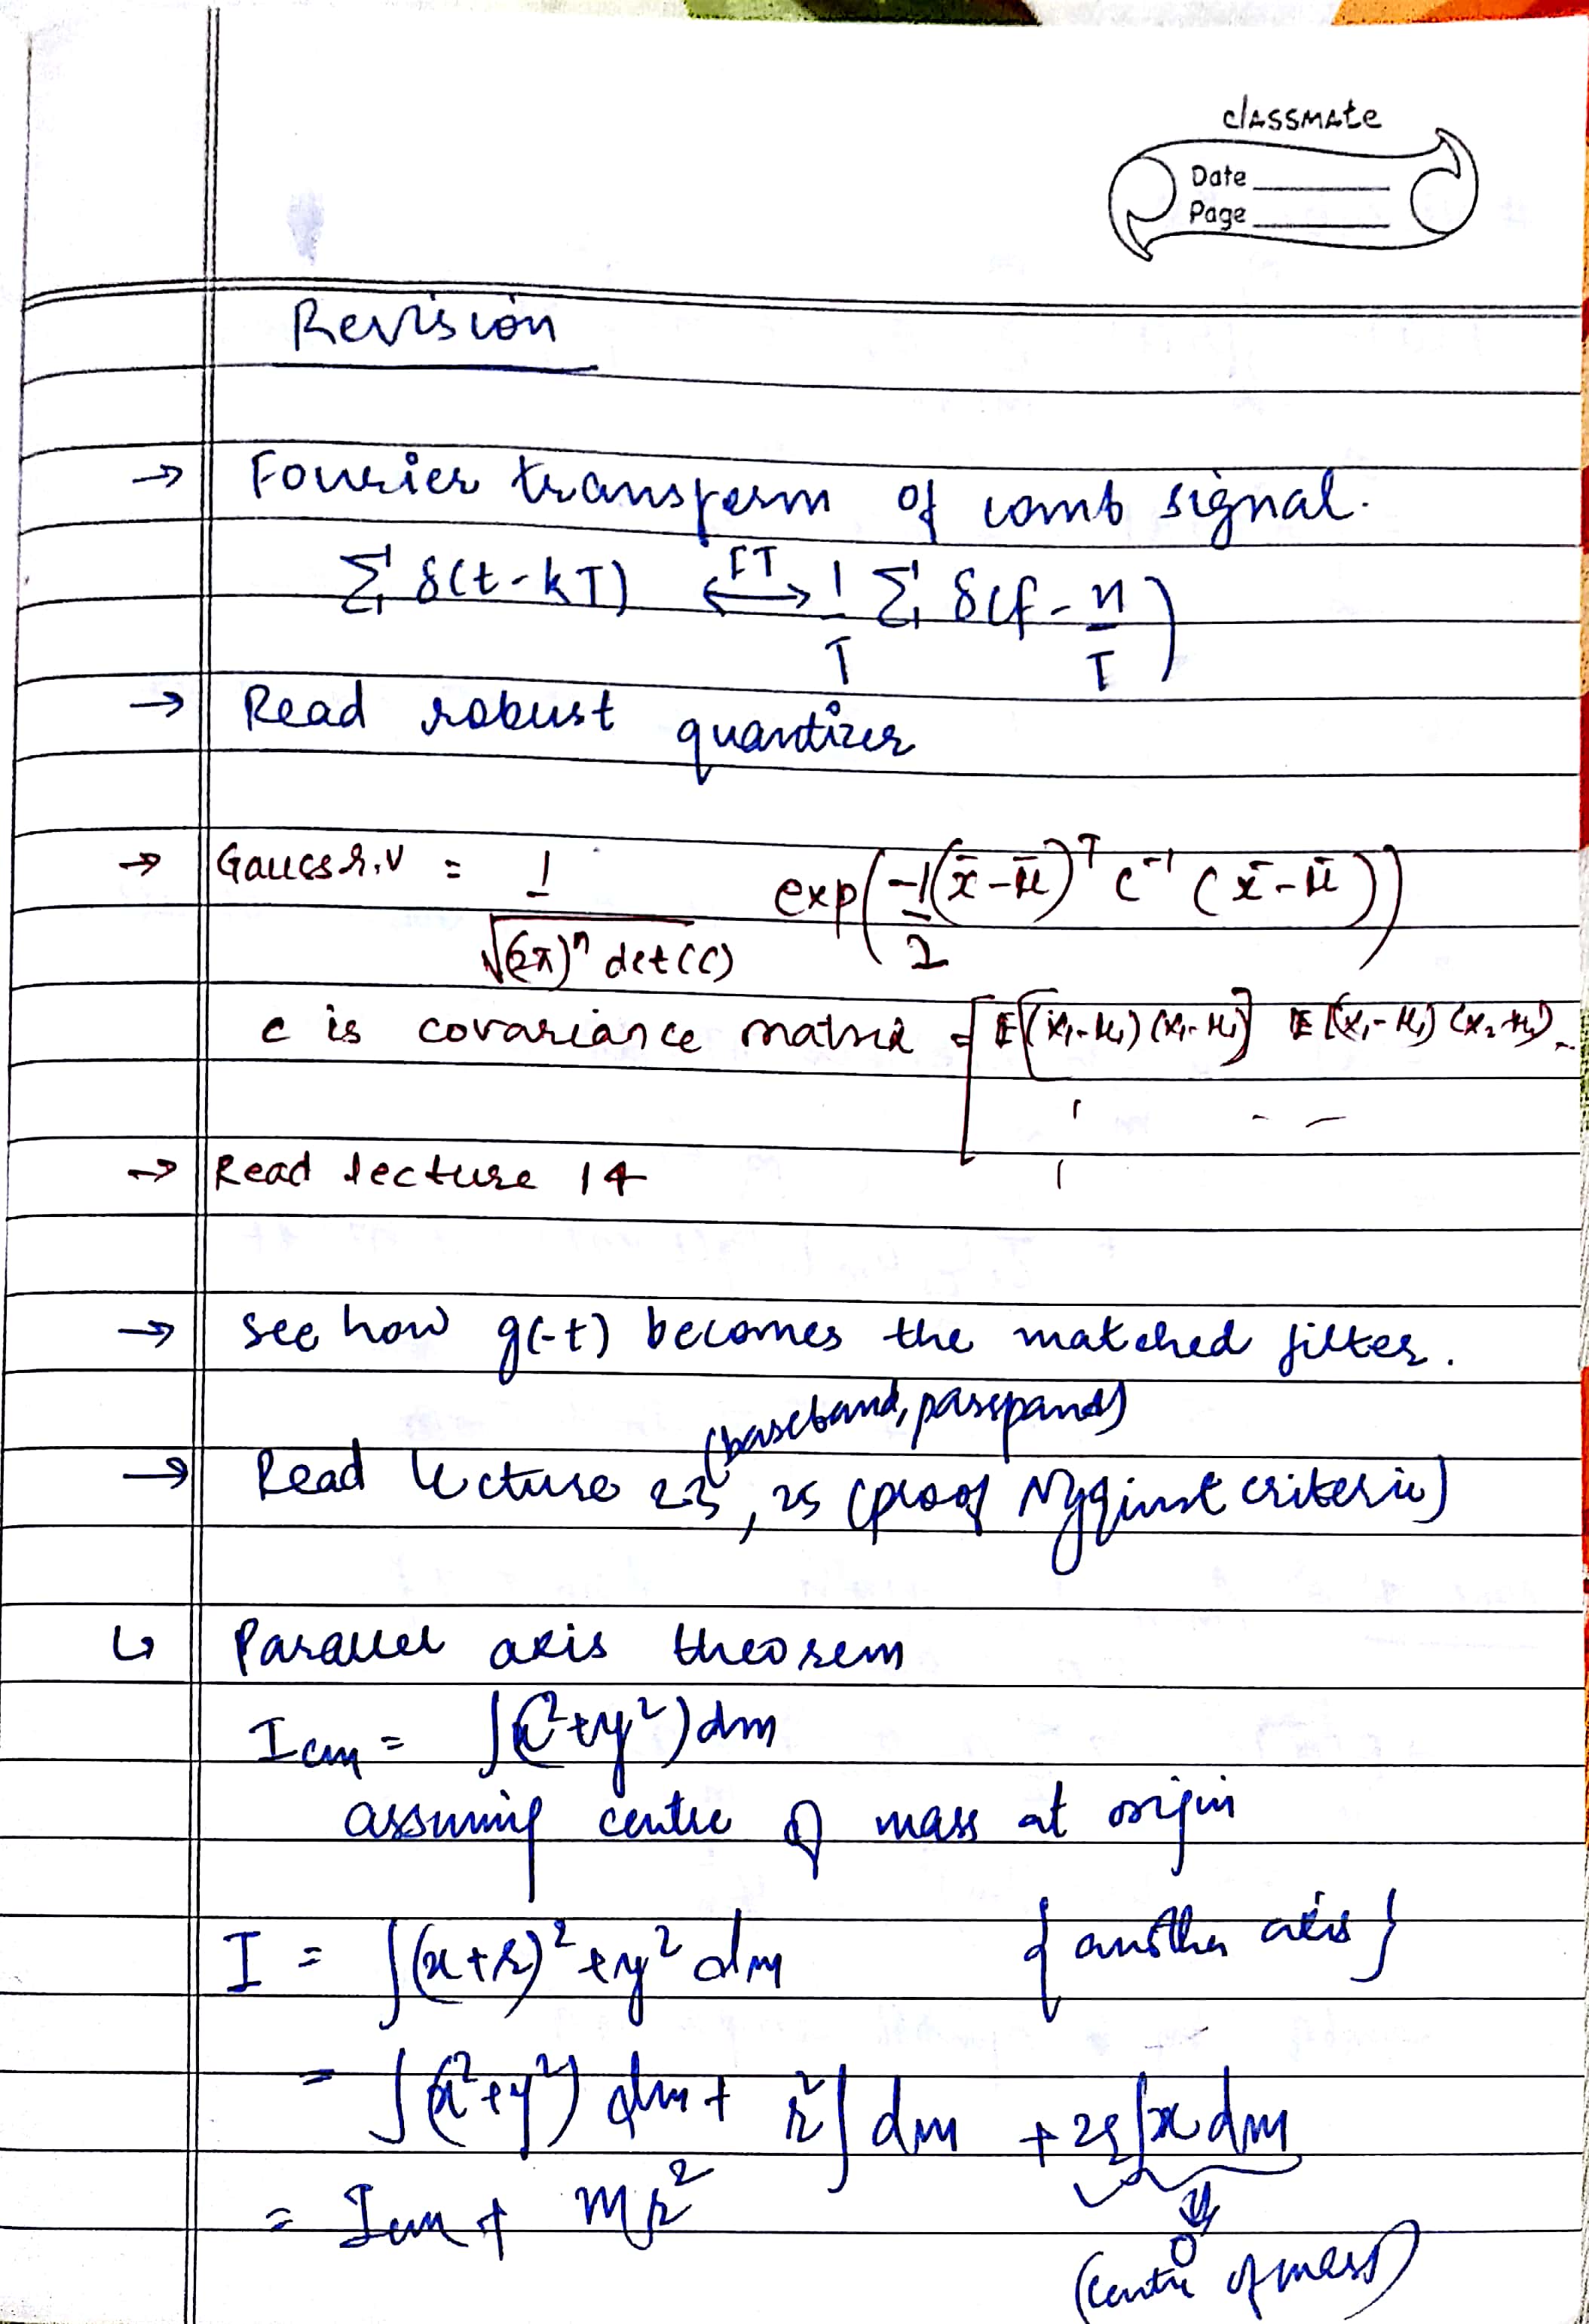 classmate
Date
Page
Revision
→ Fourier transform of comb signal.
∑ δ(t-kT) ⟷FT 1/T ∑ δ(f - n/T)
→ Read robust quantizer
→ Gauss r.v = 1/√((2π)ⁿ det(C)) exp(-1/2 (x̄-μ̄)ᵀ C⁻¹ (x̄-μ̄))
C is covariance matrix = [E[(x₁-μ₁)(x₁-μ₁)] E[(x₁-μ₁)(x₂-μ₂)..
→ Read lecture 14
→ see how g(-t) becomes the matched filter.
(baseband, passpand)
→ Read lecture 23, 25 (proof Nyquist criteria)
↳ Parallel axis theorem
Icm = ∫(x²+y²)dm
assuming centre of mass at origin
I = ∫(x+r)²+y² dm {another axis}
= ∫(x²+y²) dm + r²∫dm + 2r∫x dm
= Icm + Mr² ⇓
0
(centre of mass)